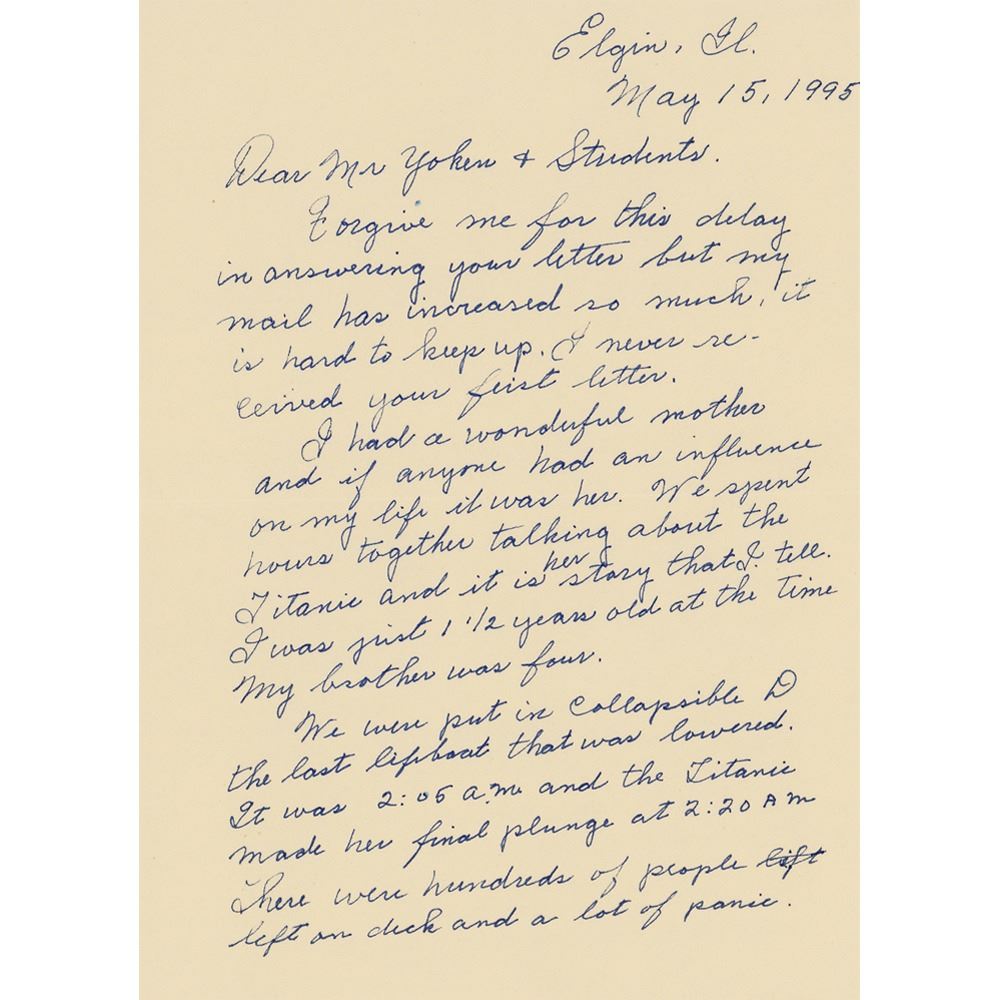 Elgin, Il.
May 15, 1995
Dear Mr Yoken + Students.
Forgive me for this delay
in answering your letter but my
mail has increased so much, it
is hard to keep up. I never re-
ceived your first letter.
I had a wonderful mother
and if anyone had an influence
on my life it was her. We spent
hours together talking about the
Titanic and it is her story that I tell.
I was just 1 1/2 years old at the time
My brother was four.
We were put in Collapsible D
the last lifeboat that was lowered.
It was 2:05 a.m and the Titanic
made her final plunge at 2:20 AM
There were hundreds of people lift
left on deck and a lot of panic.